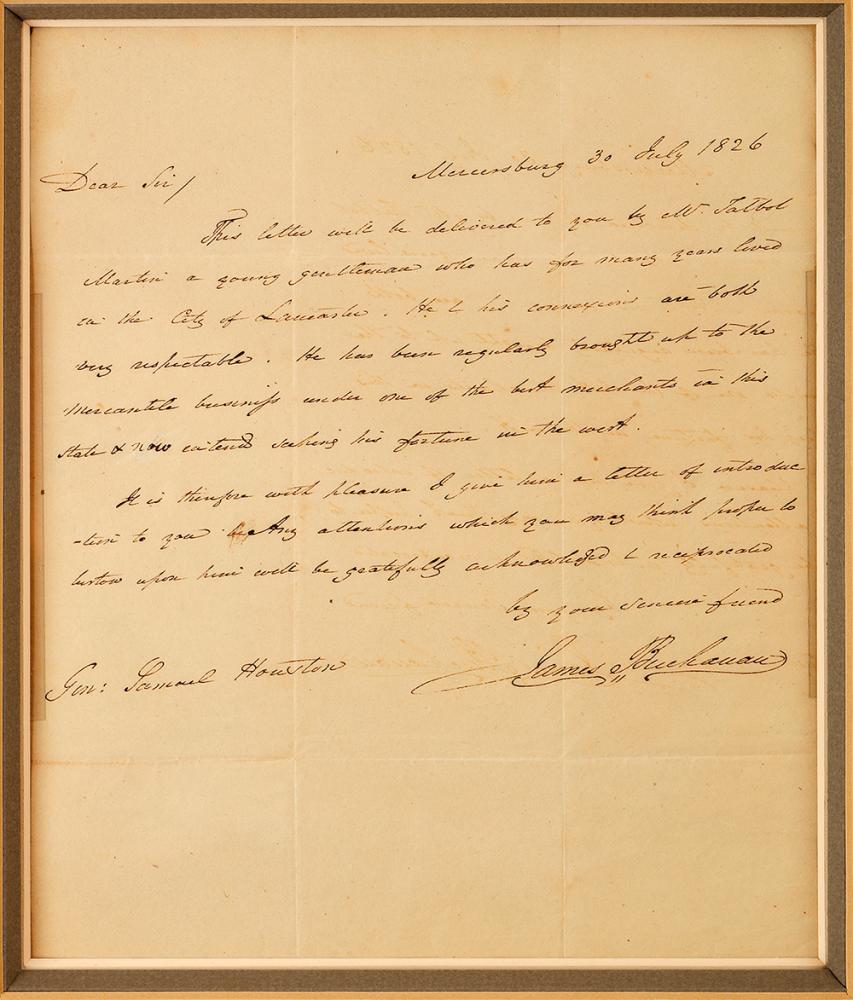 Mercersburg 30 July 1826
Dear Sir/
This letter will be delivered to you by Mr. Talbot
Martin a young gentleman who has for many years lived
in the City of Lancaster. He & his connexions are both
very respectable. He has been regularly brought up to the
mercantile business under one of the best merchants in this
State & now intends seeking his fortune in the west.
It is therefore with pleasure I give him a letter of introduc
-tion to you Any attentions which you may think proper to
bestow upon him will be gratefully acknowledged & reciprocated
by your sincere friend
James Buchanan
Gen: Samuel Houston